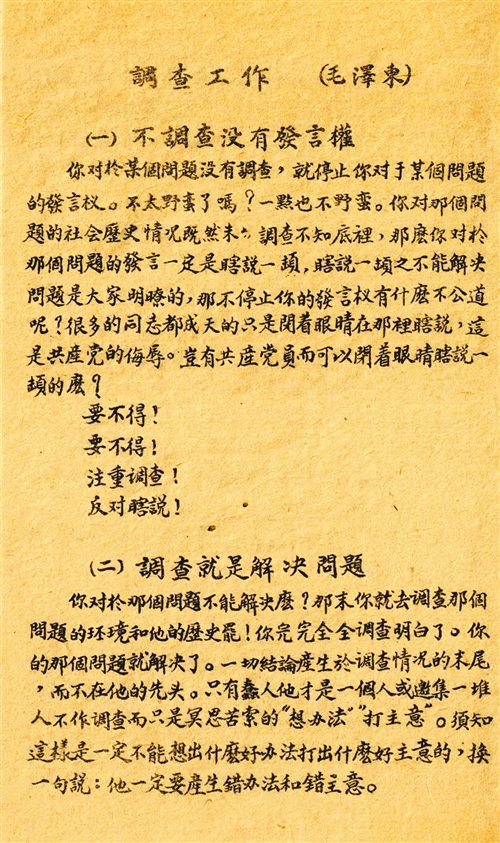 調查工作 (毛澤東)
(一) 不調查没有發言權
你对於某個問題没有調查，就停止你对于某個問題
的發言权。不太野蛮了嗎？一點也不野蛮。你对那個問
題的社会歷史情况既然未調查不知底裡，那麽你对於
那個問題的發言一定是瞎説一頓，瞎説一頓之不能解决
問題是大家明瞭的，那不停止你的發言权有什麽不公道
呢？很多的同志都成天的只是閉着眼睛在那裡瞎説，這
是共產党的侮辱。豈有共產党員而可以閉着眼睛瞎説一
頓的麽？
要不得！
要不得！
注重調查！
反对瞎説！
(二) 調查就是解决問題
你对於那個問題不能解决麽？那末你就去調查那個
問題的环境和他的歷史罷！你完完全全調查明白了。你
的那個問題就解决了。一切結論產生於調查情况的末尾
，而不在他的先头。只有蠢人他才是一個人或邀集一堆
人不作調查而只是冥思苦索的“想办法”“打主意”。須知
這樣是一定不能想出什麽好办法打出什麽好主意的，換
一句説：他一定要產生錯办法和錯主意。